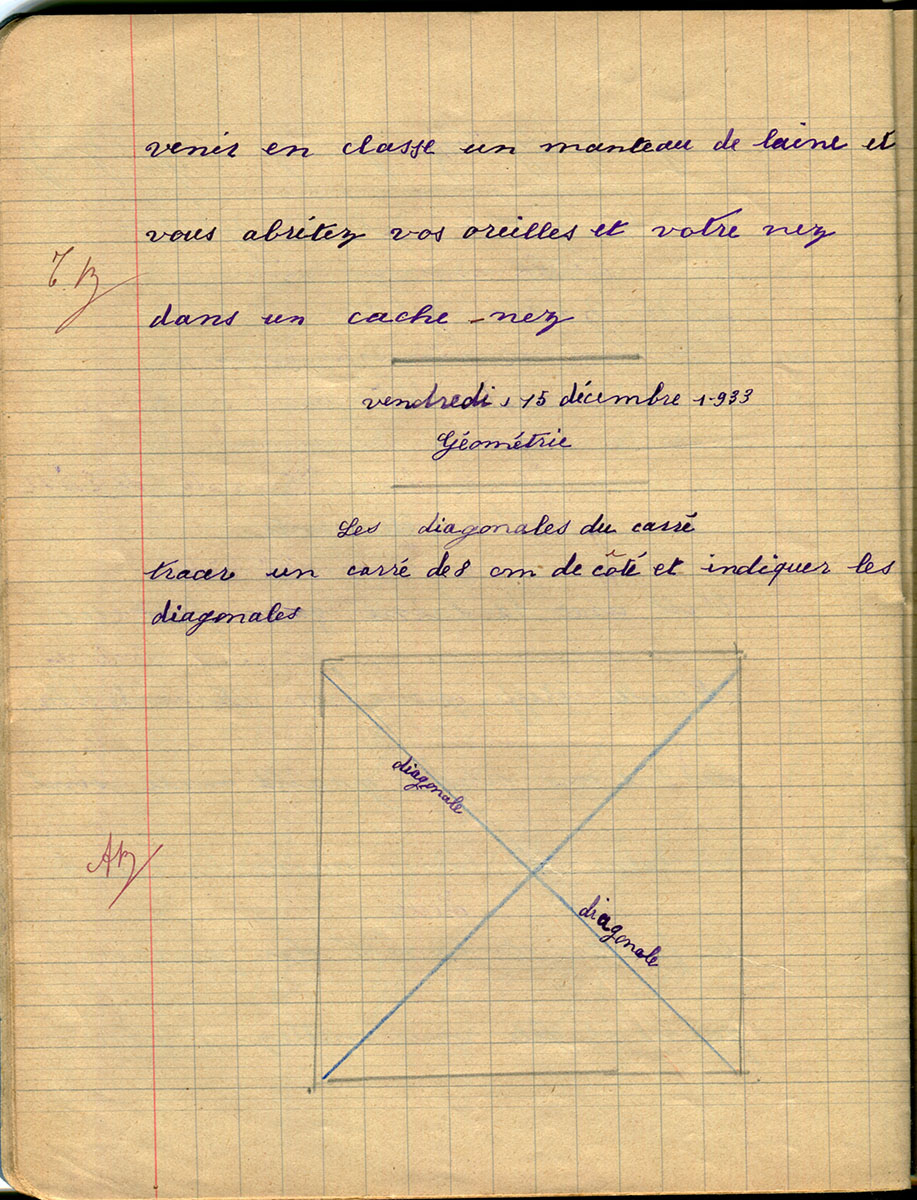 venir en classe un manteau de laine et
vous abritez vos oreilles et votre nez
T. B
dans un cache-nez
vendredi, 15 décembre 1933
Géométrie
Les diagonales du carré
tracer un carré de 8 cm de côté et indiquer les
diagonales
diagonale
AB
diagonale